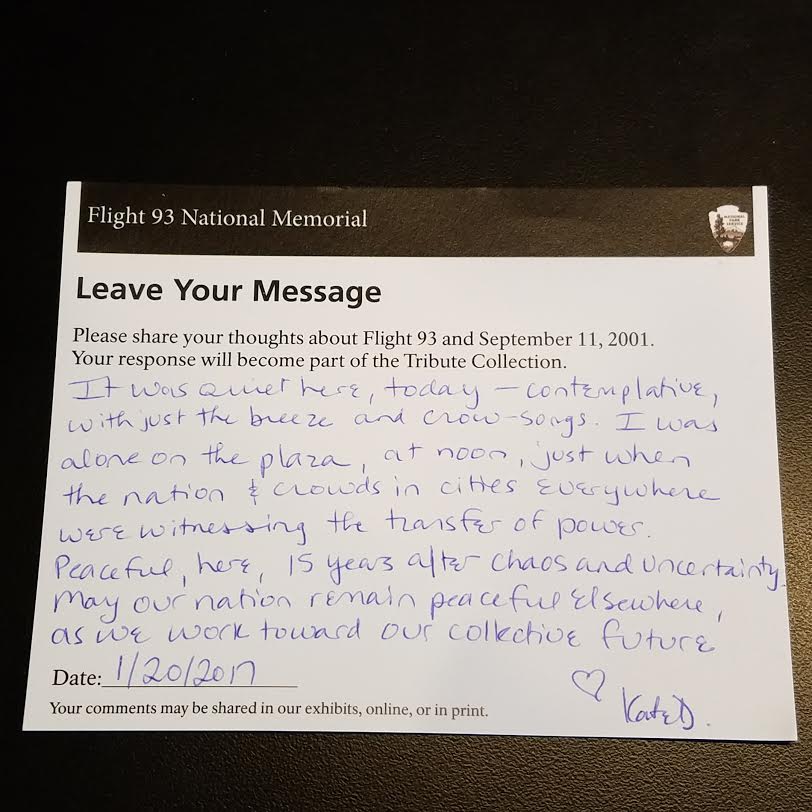 Flight 93 National Memorial
NATIONAL
PARK
SERVICE
Leave Your Message
Please share your thoughts about Flight 93 and September 11, 2001.
Your response will become part of the Tribute Collection.
It was quiet here, today – contemplative,
with just the breeze and crow-songs. I was
alone on the plaza, at noon, just when
the nation & crowds in cities everywhere
were witnessing the transfer of power.
Peaceful, here, 15 years after chaos and uncertainty.
May our nation remain peaceful elsewhere,
as we work toward our collective future
Date: 1/20/2017
♡ Kate D.
Your comments may be shared in our exhibits, online, or in print.